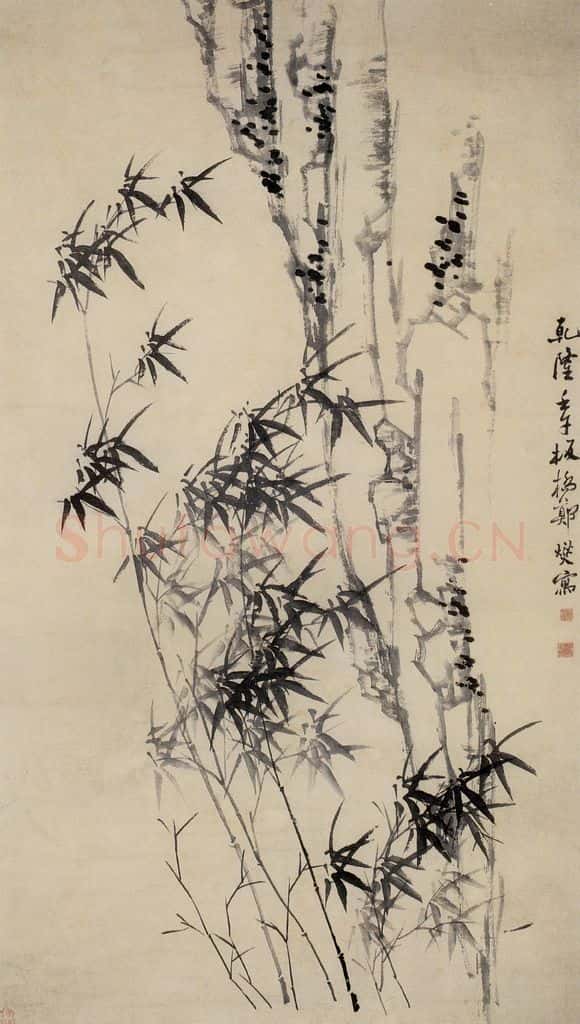 乾隆壬午板橋鄭燮寫
Shufawang.CN